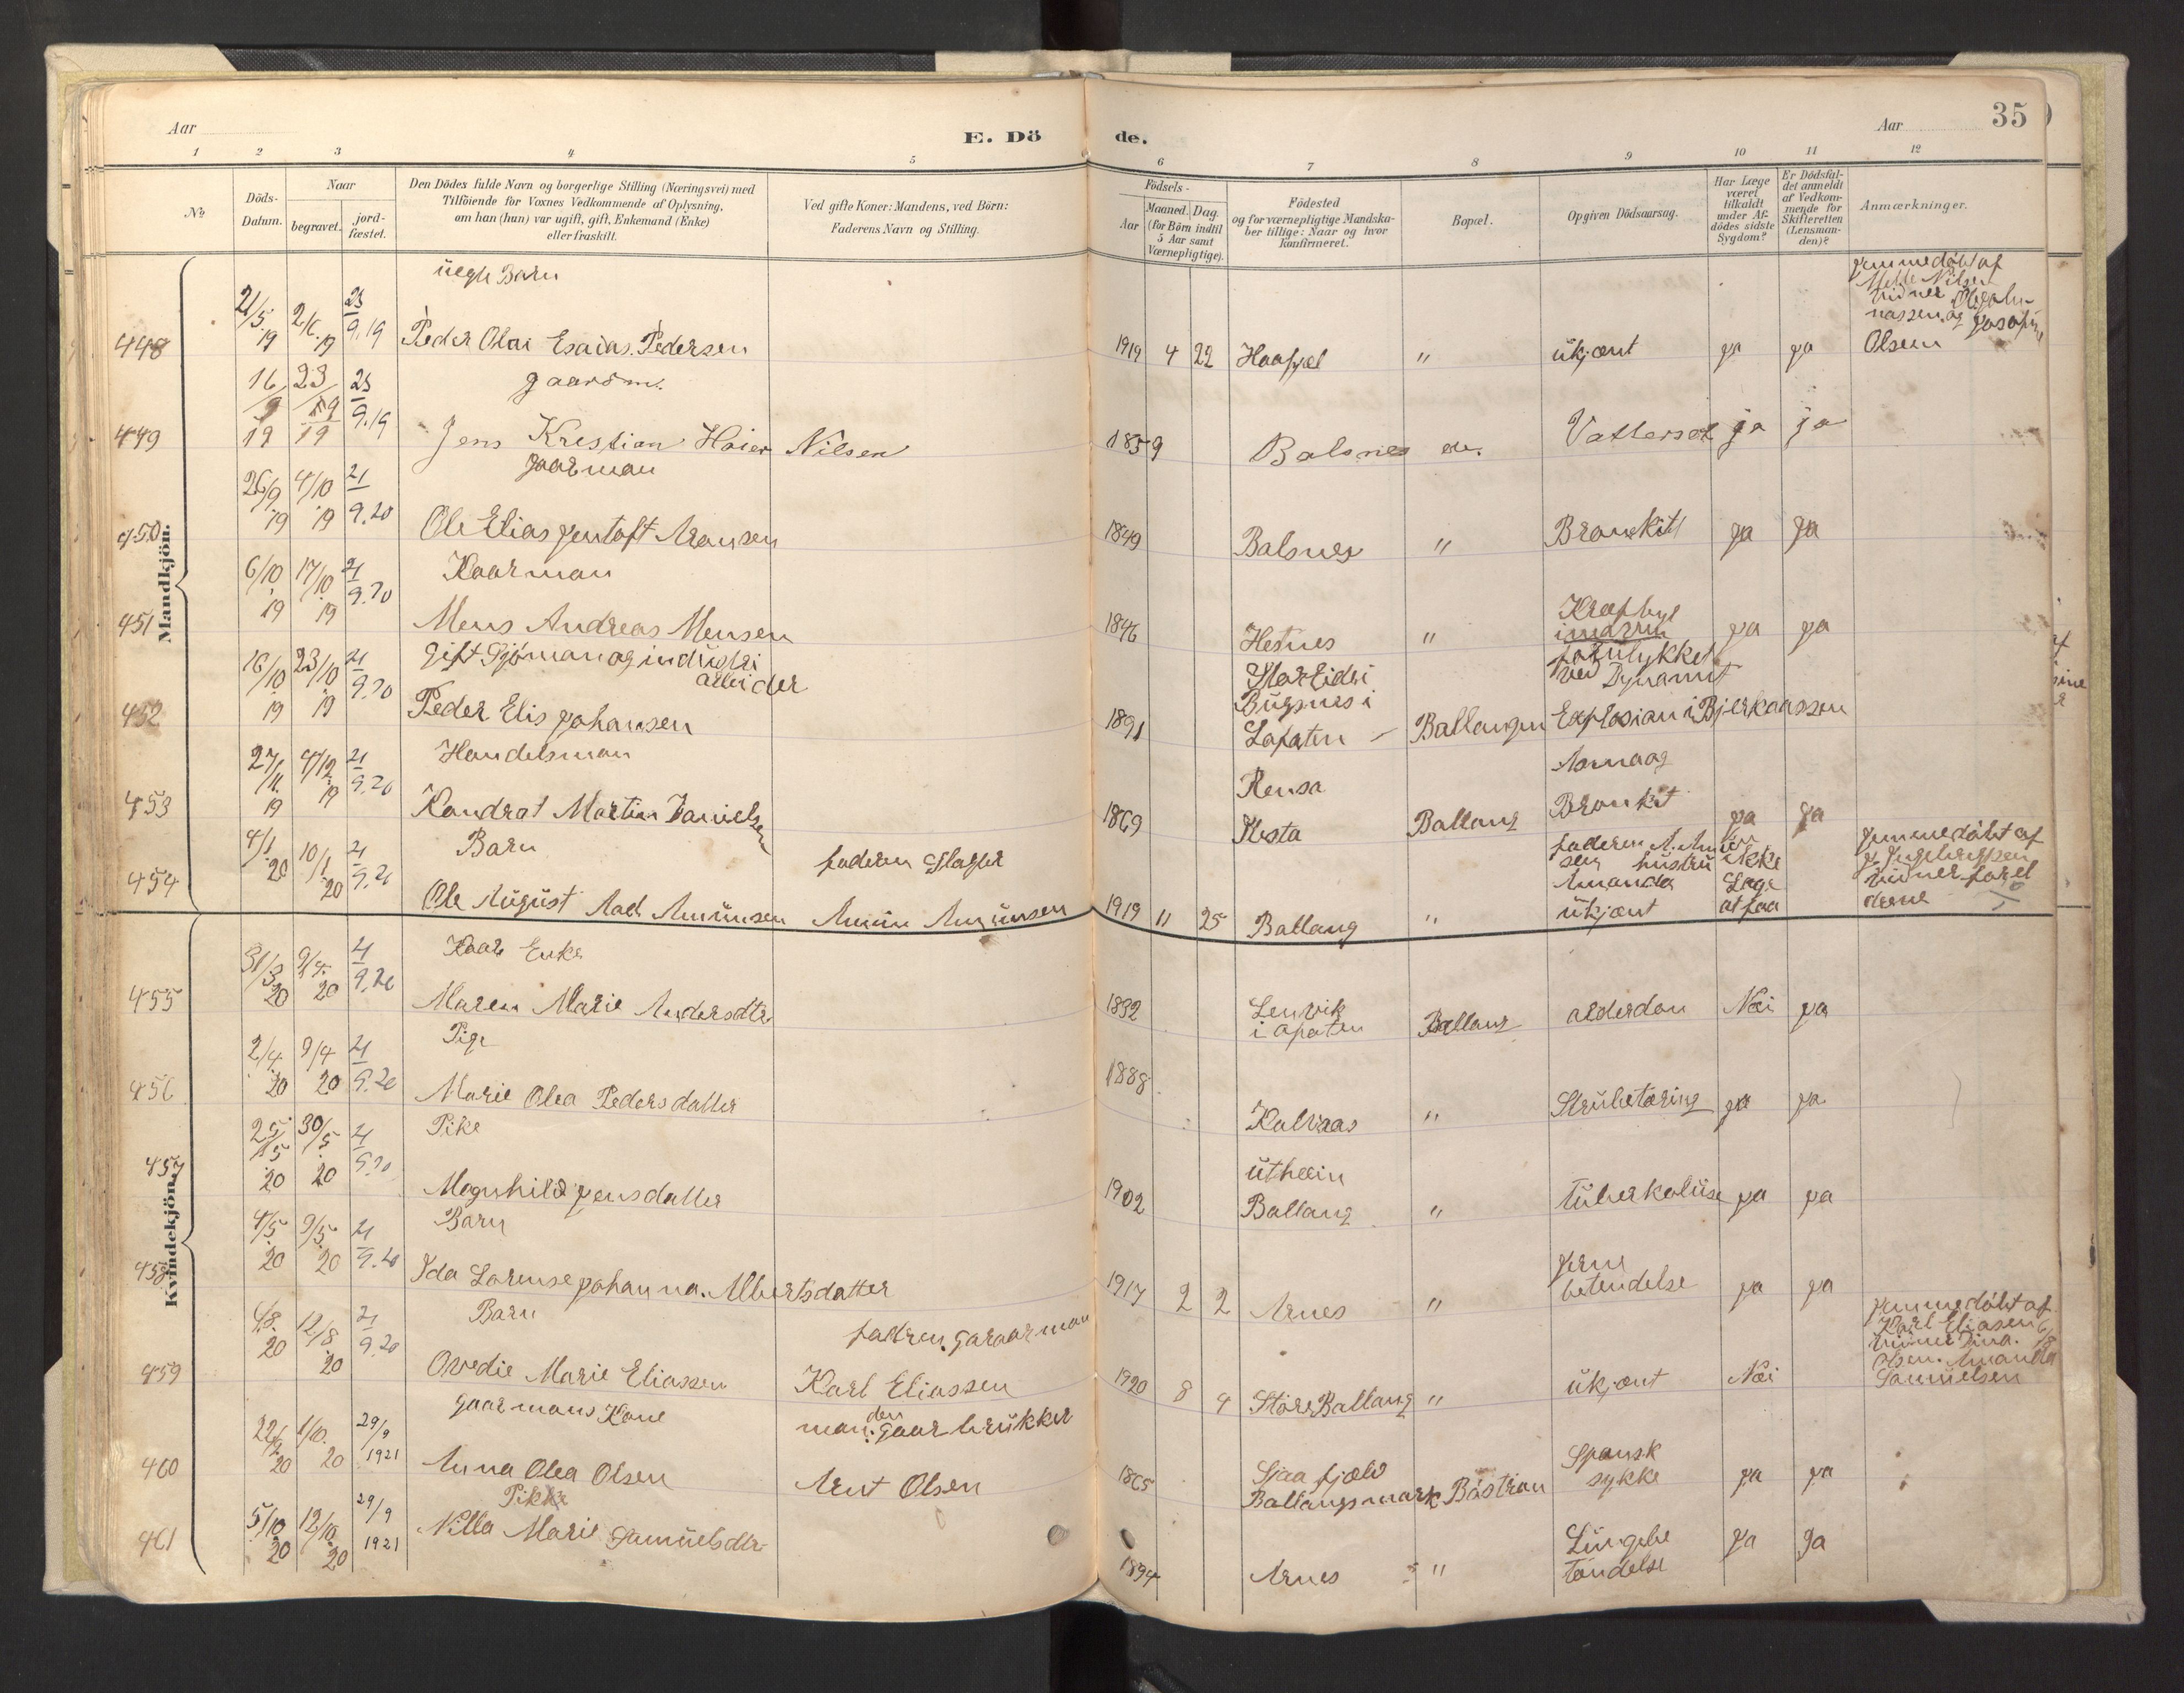 Aar
E. Dö
de.
Aar
35
1 2 3 4 5 6 7 8 9 10 11 12
No
Döds-
Datum.
Naar
begravet.
jord-
fæstet.
Den Dödes fulde Navn og borgerlige Stilling (Næringsvei) med
Tilföiende for Voxnes Vedkommende af Oplysning,
om han (hun) var ugift, gift, Enkemand (Enke)
eller fraskilt.
Ved gifte Koner: Mandens, ved Börn:
Faderens Navn og Stilling.
Födsels-
Aar
Maaned.
Dag.
(for Börn indtil
5 Aar samt
Værnepligtige).
Födested
og for værnepligtige Mandska-
ber tillige: Naar og hvor
konfirmeret.
Bopæl.
Opgiven Dödsaarsag.
Har Læge
været
tilkaldt
under Af-
dödes sidste
Sygdom?
Er Dödsfal-
det anmeldt
af Vedkom-
mende for
Skifteretten
(Lensman-
den)?
Anmærkninger.
Mandkjön.
uegte Barn
448 21/5 19 2/6 19 23/9.19 Peder Olai Esaias. Pedersen
1919 4 22 Haafjel " ukjent ja ja
jemmedöbt af
Mette Nilsen
vidner
og Josefine
Olsen
gaardm.
449 16/9 19 23/9 19 23/9.19 Jens Krestian Hoier Nilsen
1859 Balsnes Vattersot ja ja
Gaarman
450 26/9 19 4/10 19 21/9.20 Ole Elias Jentoft Aronsen
1849 Balsnes " Bronkit ja ja
Kaarman
451 6/10 19 17/10 19 21/9.20 Mens Andreas Mensen
1846 Hesnes " Kræft
i marven ja ja
Gift Sjöman og industri
arbeider
452 16/10 19 23/10 19 21/9.20 Peder Elis Johansen
1891
Lofoten Ballangen
forulykket
ved Dynamit
Explosion i Bjerkaassen
Handelsman
453 27/11. 19 4/12 19 21/9.20 Kondrat Martin Danielsen
1869 Rensa
Kjesta Ballang
Bronkit ja ja
Barn
faderen Slagter
454 4/1 20 10/1 20 21/9.20 Ole August Aad Amunsen
Amun Amunsen
1919 11 25 Ballang "
faderen A. Amun
sen hustru
Amanda
ukjent
ikke
Lege
at faa
jemmedöbt af
J Ingebregtsen
vidner forel
drene
Kvindekjön.
Kaar Enke
455 31/3 20 9/4. 20 21/9.20 Maren Marie Andersdtr
1832 Lenvik
i ofoten Ballang alderdom Nei ja
Pige
456 2/4. 20 9/4 20 21/9.20 Marie Olea Pedersdatter
1888 Kalvaas " Strubetæring ja ja
Pike
457 25/5 20 30/5 20 21/9.20 Magnhild Jensdatter
1902
Ballang " tuberkoluse ja ja
Barn
458 4/5 20 9/5 20 21/9.20 Ida Lorense Johanna. Albertsdatter
1917 2 2 Arnes " jerne
betendelse ja ja
Barn
459 4/8. 20 12/8 20 21/9.20 Ovedie Marie Eliassen
fadren. gaaarman
Karl Eliassen
1920 8 4 Store Ballang " ukjent Nei
jemmedöbt af
Karl Eliasen
vidner Dina.
Olsen. Amanda
Samuelsen
gaarmans Kone
460 22/9. 20 1/10. 20 29/9 1921 Anna Olea Olsen
manden. gaarbrukker
Arnt Olsen
1865 Sjaafjeld
Ballangsmark Böstran Spansk
sykke ja ja
Pikke
461 5/10 20 12/10. 20 29/9 1921 Nilla Marie Samuelsdtr
1894 Arnes " Lungebe
töndelse ja ja